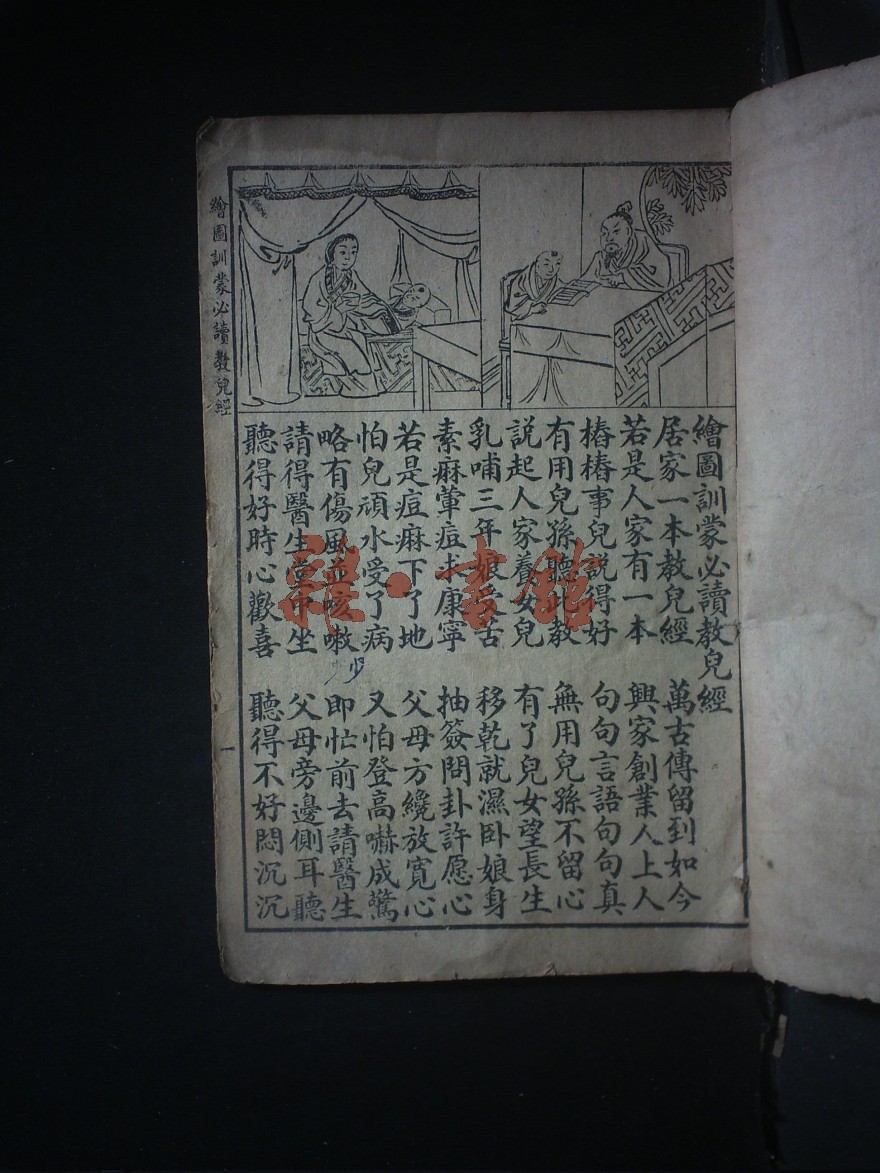 繪圖訓蒙必讀教兒經
居家一本教兒經　萬古傳留到如今
若是人家有一本　興家創業人上人
樁樁事兒説得好　句句言語句句真
有用兒孫聽此教　無用兒孫不留心
説起人家養女兒　有了兒女望長生
乳哺三年娘受苦　移乾就濕卧娘身
素痳葷痘求康寧　抽簽問卦許愿心
若是痘痳下了地　父母方纔放寬心
怕兒頑水受了病　又怕登高嚇成驚
略有傷風並咳嗽　即忙前去請醫生
請得醫生堂中坐　父母旁邊側耳聽
聽得好時心歡喜　聽得不好悶沉沉
繪圖訓蒙必讀教兒經
一
雜·書館